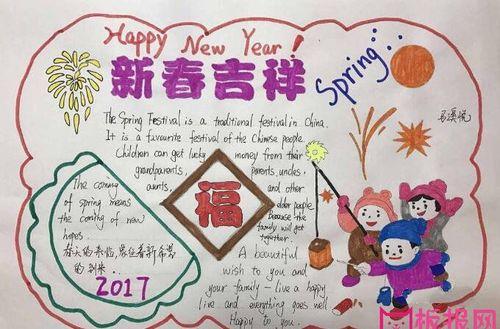 Happy New Year!
新春吉祥
Spring
The Spring Festival is a traditional festival in China.
It is a favourite festival of the Chinese people.
Children can get lucky money from their
grandparents, parents, uncles,
aunts, and other
older people
because the
family will get
together.
福
The coming
of spring means
the coming of new
hopes.
春天的来临,意味着新希望
的到来.
2017
A beautiful
wish to you and
your family - live a happy
live and everything goes well
Happy to you.
板报网